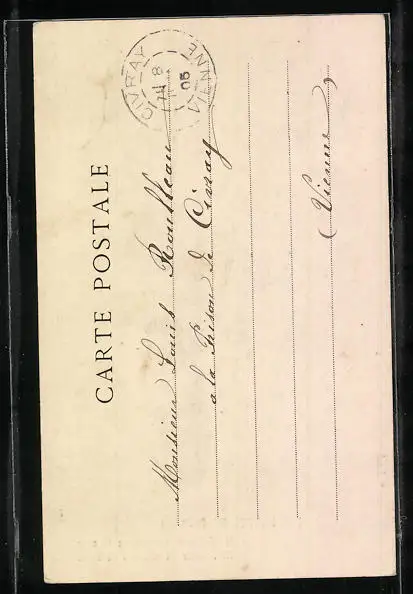 CARTE POSTALE
CIVRAY
8
05
VIENNE
Monsieur Louis Roulleau
à la Prison de Civray
(Vienne)